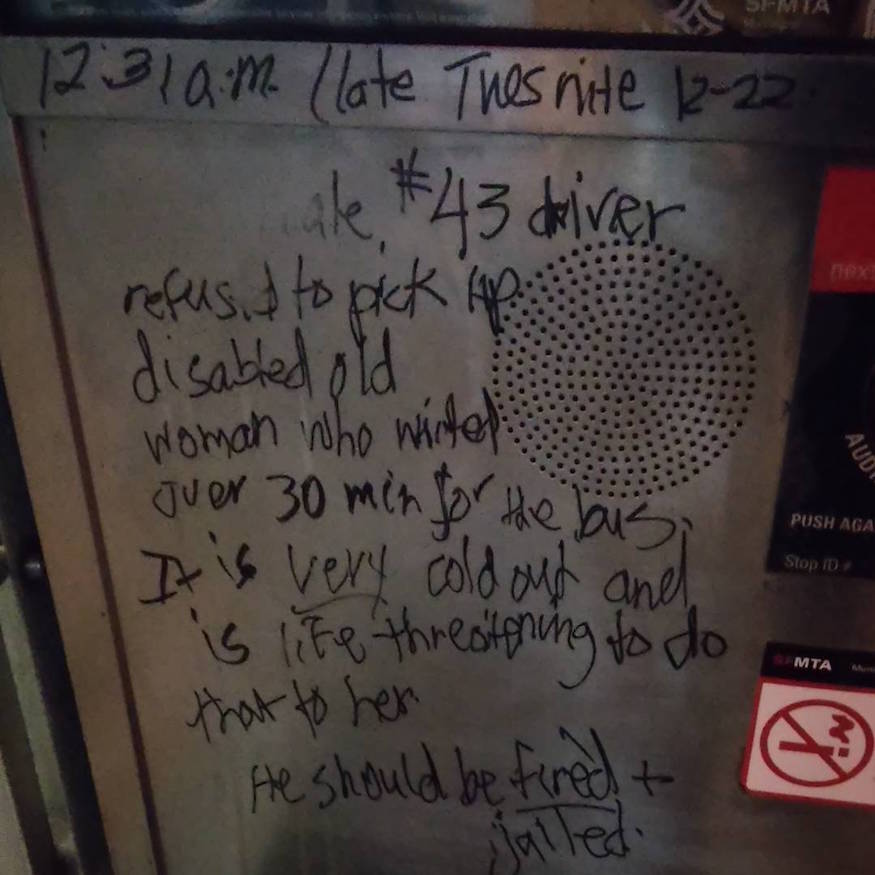 SFMTA
12:31 a.m. (late Tues nite 12-22
#43 driver
refused to pick up
disabled old
woman who waited
over 30 min for the bus.
It is very cold out and
is life-threatening to do
that to her.
He should be fired +
jailed.
next
PUSH AGA
Stop ID #
SFMTA